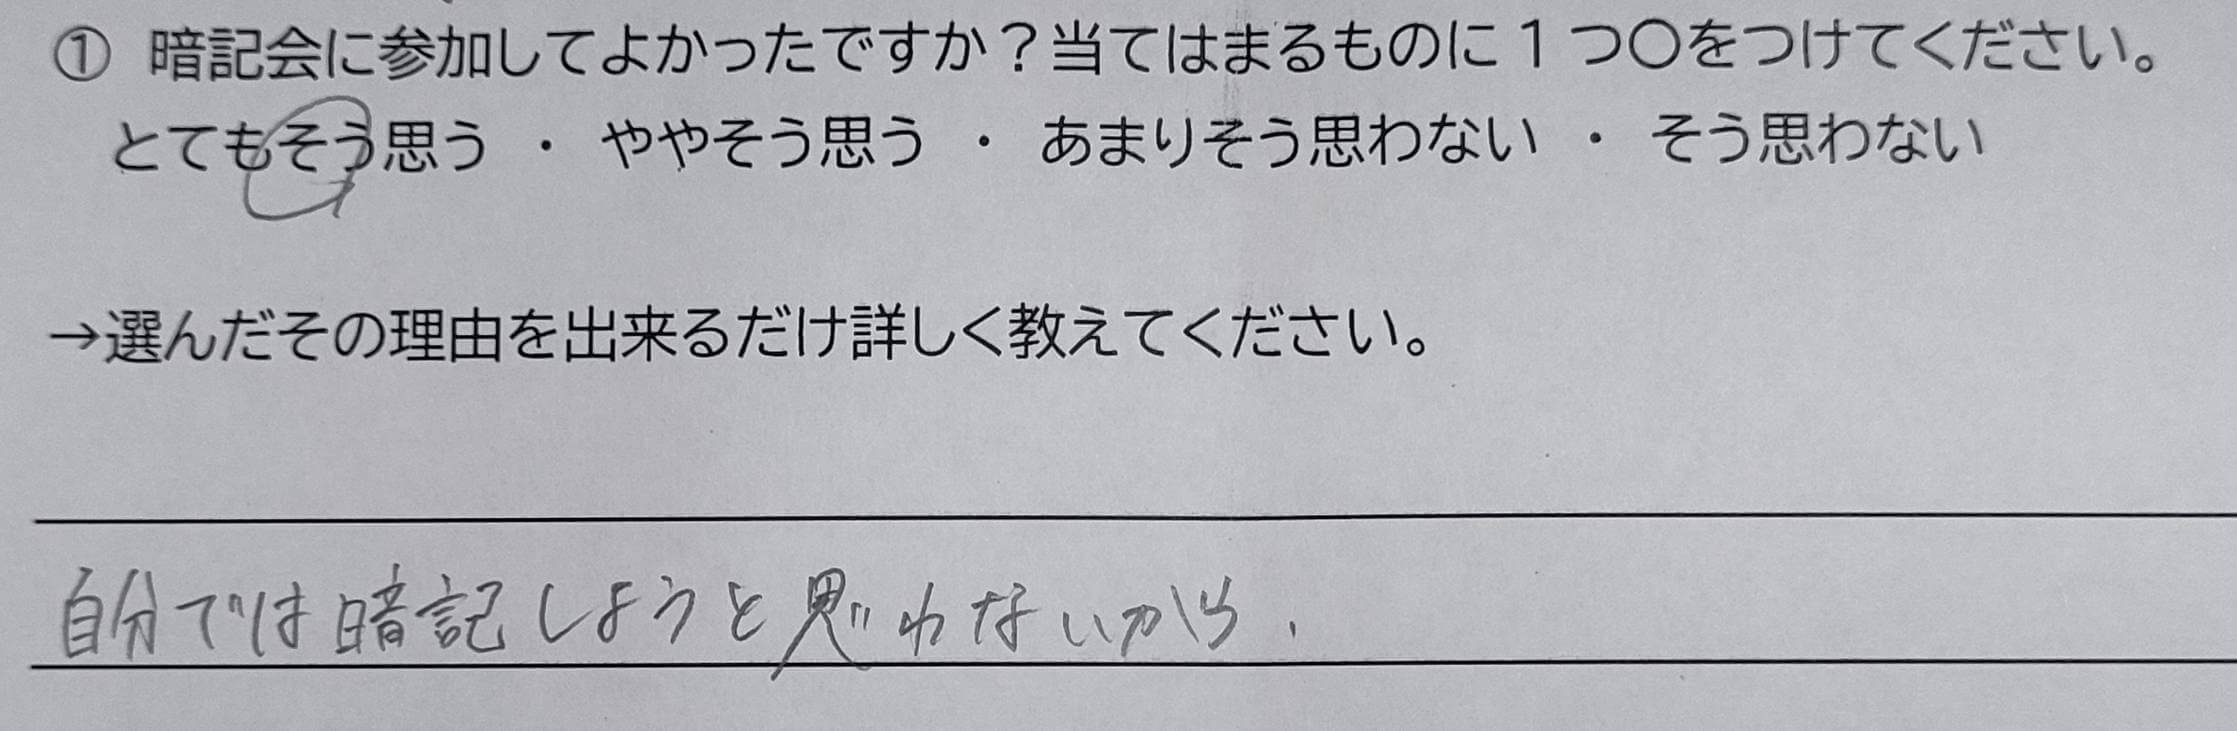 ① 暗記会に参加してよかったですか？当てはまるものに１つ〇をつけてください。
とてもそう思う ・ ややそう思う ・ あまりそう思わない ・ そう思わない
→選んだその理由を出来るだけ詳しく教えてください。
自分では暗記しようと思わないから.